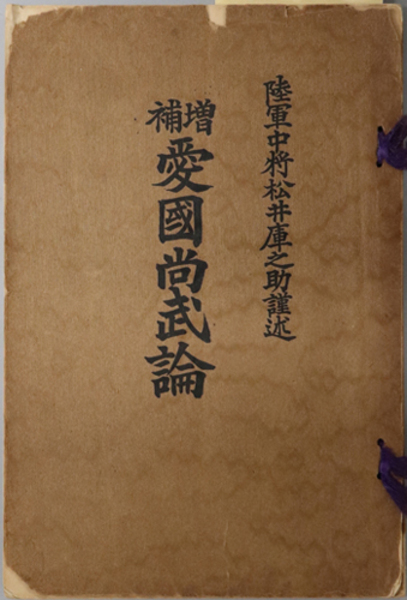 陸軍中将松井庫之助謹述
増補
愛國尚武論